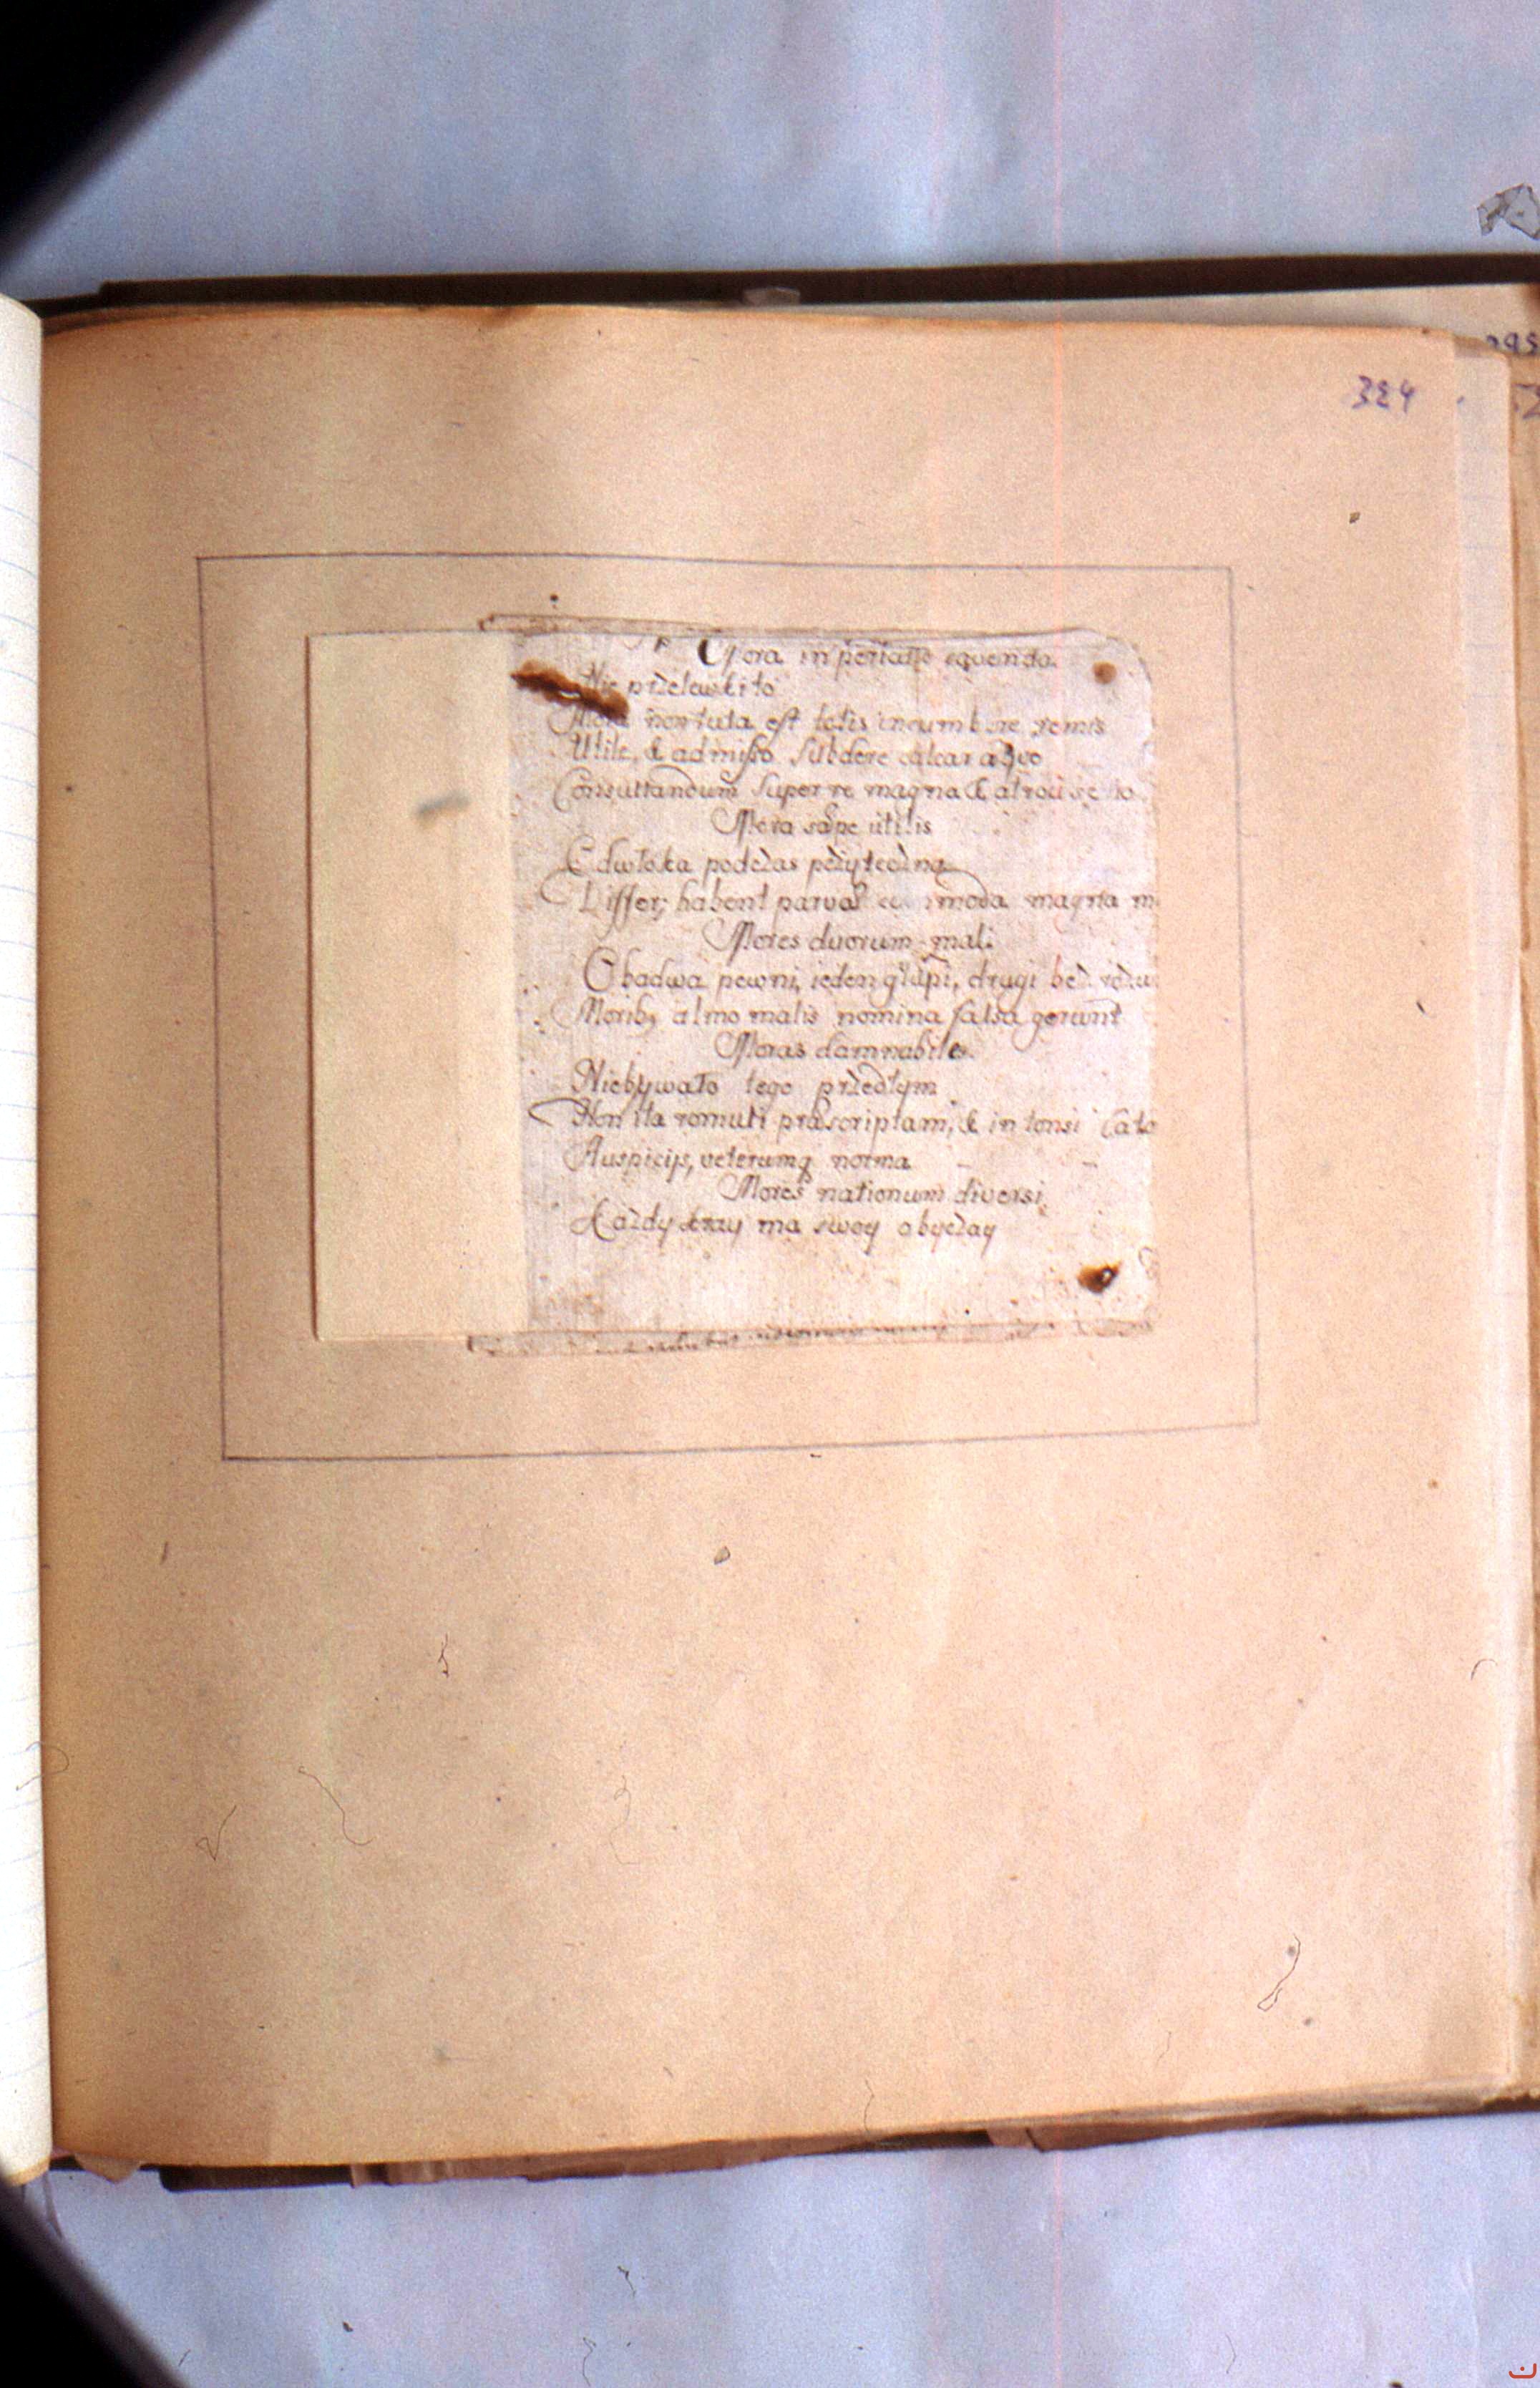 324
Mora in periculo equenda
Nie przelewki to
Mora non tuta est totis incumbere remis
Utile, & admisso subdere calcar aquo
Consultandum super re magna & atroci
Mora sæpe utilis
Edwłoka podczas pożyteczna
Differ; habent parvæ commoda magna m
Mores duorum mali
Obadwa pewni, ieden głupi, drugi bez rozu
Morib9 almo malis nomina falsa gerunt
Moras damnabiles.
Niebywało tego przedtym
Non ita romuli præscriptam, & intonsi Cato
Auspicijs, veterumq norma
Mores nationum diversi
Każdy kray ma swoy obyczay